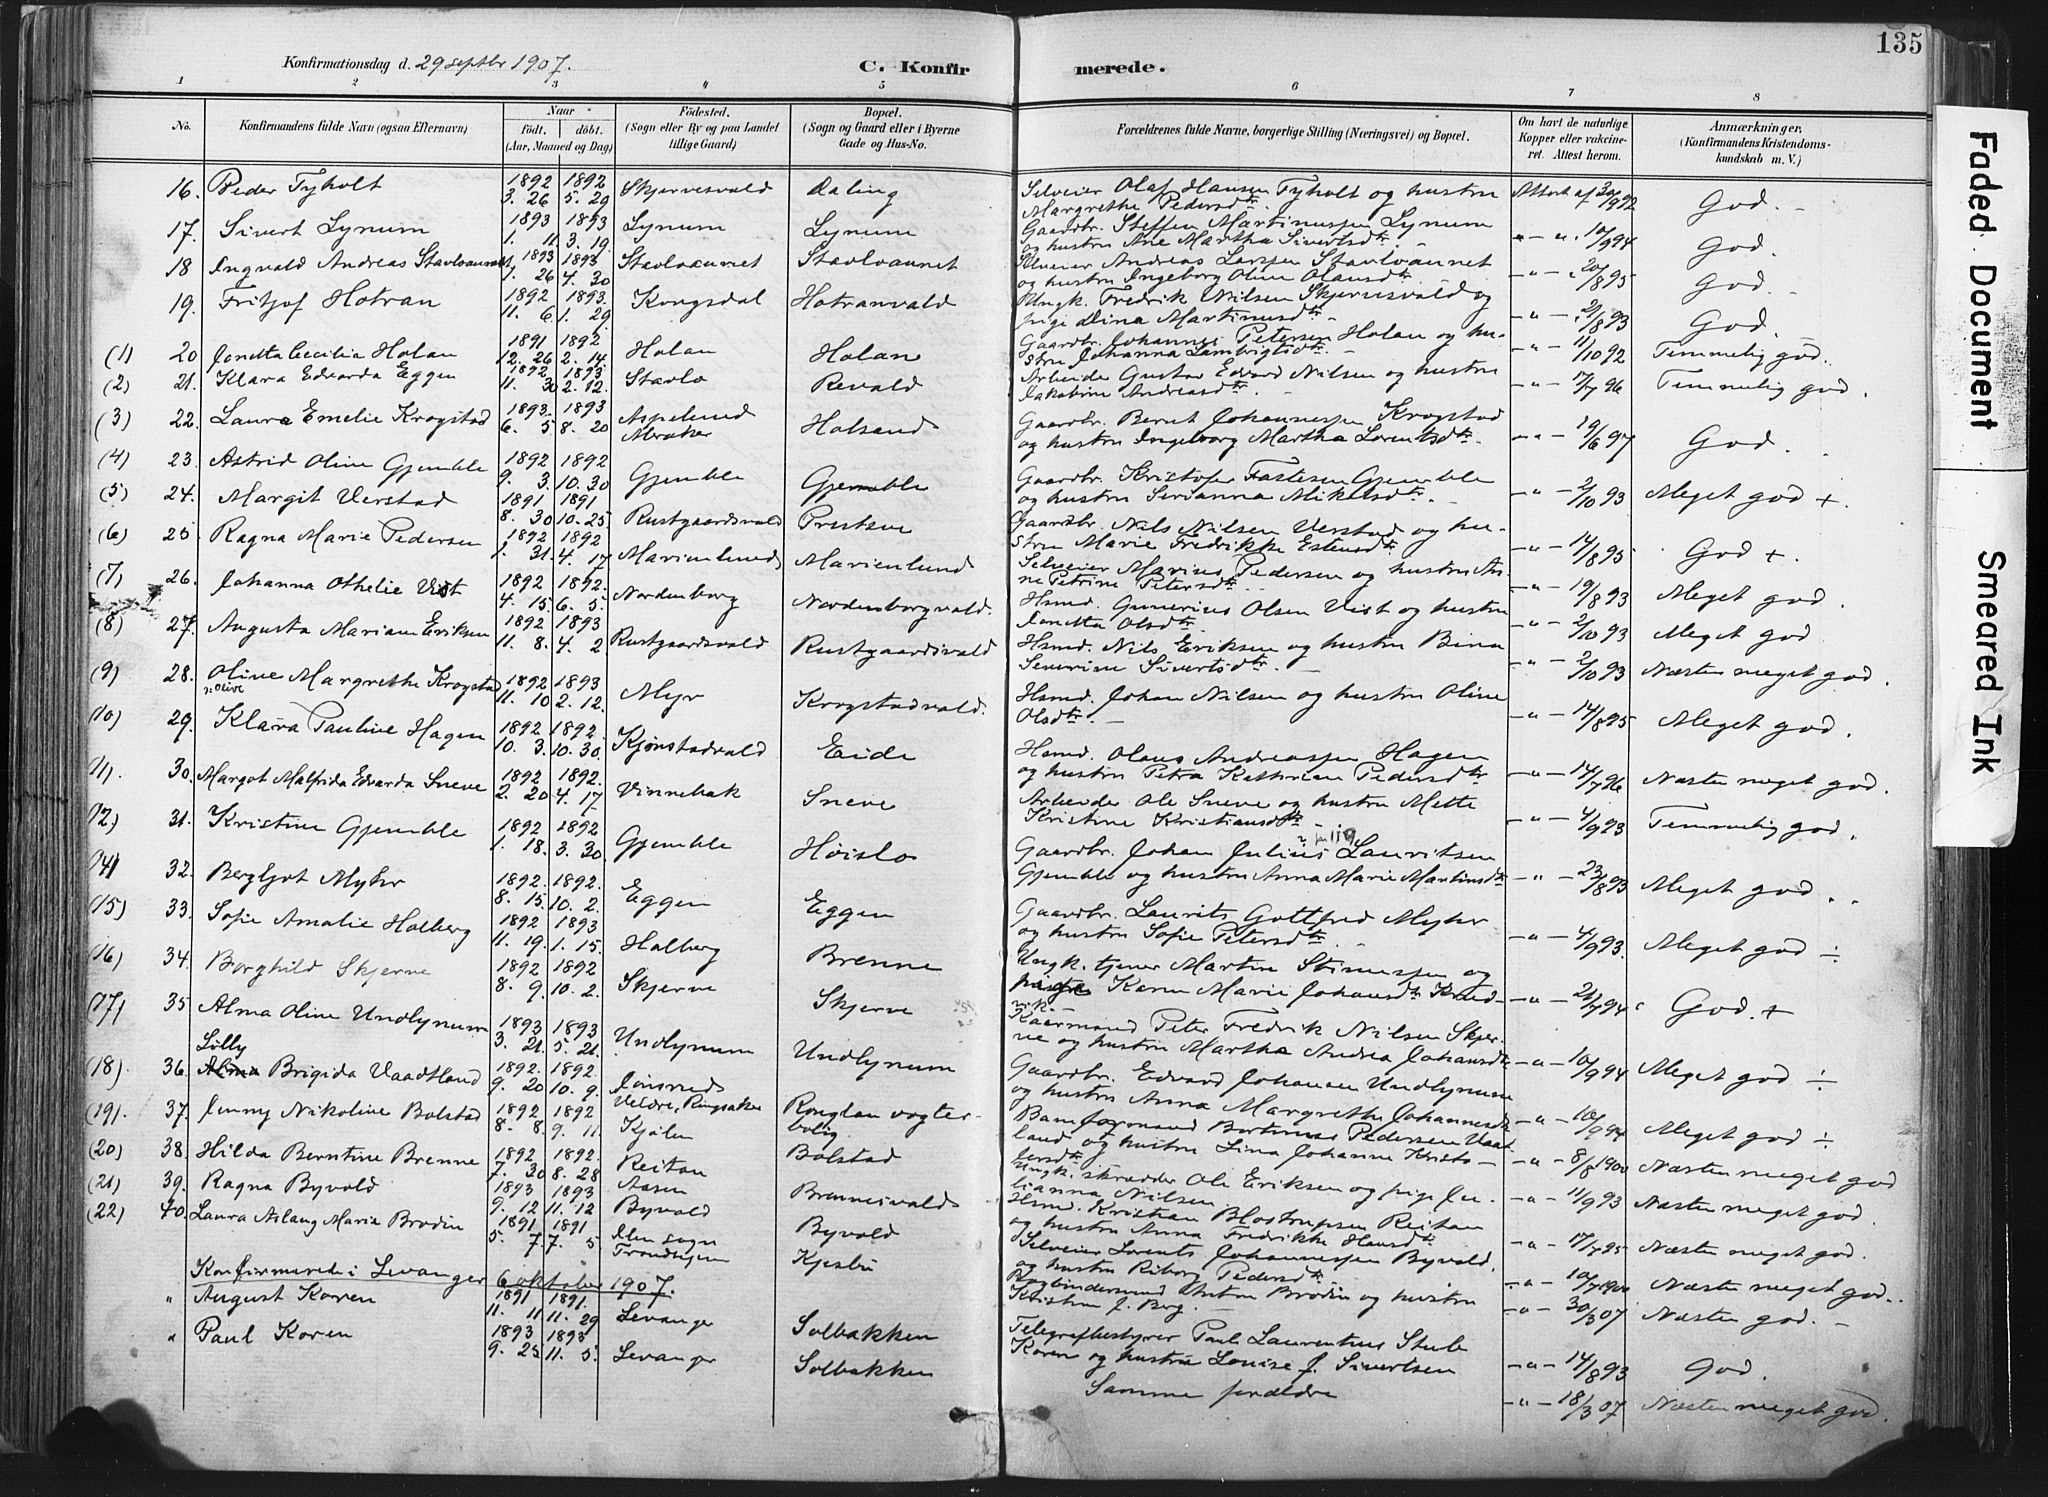 135
Konfirmationsdag d. 29 septbr 1907.
C. Konfirmerede.
1 2 3 4 5 6 7 8
No.
Konfirmandens fulde Navn (ogsaa Efternavn)
Naar
født. døbt.
(Aar, Maaned og Dag)
Födested.
(Sogn eller By og paa Landet
tillige Gaard)
Bopæl.
(Sogn og Gaard eller i Byerne
Gade og Hus-No.
Forældrenes fulde Navne, borgerlige Stilling (Næringsvei) og Bopæl.
Om havt de naturlige
Kopper eller vakcine-
ret. Attest herom.
Anmærkninger.
(Konfirmandens Kristendoms-
kundskab m. V.)
16. Peder Tyholt 1892 3. 26 1892 5. 29 Skjervesvald Daling Selveier Olaf Hansen Tyholt og hustru
Margrethe Pedersdtr. Attest af 30/9 92 God. -
17. Sivert Lynum 1893 1. 11 1893 3. 19 Lynum Lynum Gaardbr. Steffen Martinussen Lynum
og hustru Ane Martha Sivertsdtr. 10/9 94 God
18 Ingvald Andreas Stavlvaunet 1893 1. 26 1893 4. 30 Stavlvaunet Stavlvaunet Selveier Andreas Larssen Stavlvaunet
og hustru Ingeborg Oline Olausdtr. 20/8 95 God.
19. Fritjof Hotran 1892 11. 6 1893 1. 29 Kongsdal Hotranvald Ungk. Fredrik Nilsen Skjervesvald og
pige Dina Martinusdtr. 21/8 93 God.
(1) 20 Jonetta Cecilia Holan 1891 12. 26 1892 2. 14 Holan Holan Gaardbr. Johannes Petersen Holan og hu-
stru Johanna Lambrigtsdtr. 11/10 92 Temmelig god.
(2) 21. Klara Edvarda Eggen 1892 11. 30 1893 2. 12. Stavlo Revald Arbeider Gustav Edvard Nilsen og hustru
Jakobine Andreasdtr. 17/7 96 Temmelig god.
(3) 22. Laura Emelie Krogstad 1893 6. 5 1893 8. 20 Aspelund Holsand Gaardbr. Bernt Johannessen Krogstad
og hustru Ingeborg Martha Lorentsdtr. 19/6 97 God.
(4) 23. Astrid Oline Gjemble 1892 9. 3. 1892 10. 30 Gjemble Gjemble Gaardbr. Kristofer Fastesen Gjemble
og hustru Serianna Mikalsdtr. 2/10 93 Meget god +
(5) 24. Margit Verstad 1891 8. 30 1891 10. 25 Rustgaardsvald Gaardbr. Nils Nilsen Verstad og hu-
stru Marie Fredrikke Estensdtr. 14/8 95 God +.
(6) 25. Ragna Marie Pedersen 1892 1. 31. 1892 4. 17 Marienlund Marienlund Selveier Marius Pedersen og hustru An-
ne Petrine Petersdtr. 19/8 93 Meget god.
(7) 26. Johanna Othelie Vist 1892 4. 15 1892. 6. 5. Nordenborg Nordenborgvald. Hsmd. Gunerius Olsen Vist og hustru
Jonetta Olsdtr. 2/10 93 Meget god
(8) 27. Augusta Mariane Eriksen 1892 11. 8. 1893 4. 2 Rustgaardsvald Rustgaardsvald Hsmd. Nils Eriksen og hustru Bina
Severine Sivertsdtr. 2/10 93 Næsten meget god.
(9) 28. Oline Margrethe Krogstad
ɔ: Olive 1892 11. 10 1893 2. 12. Myr Krogstadvald. Hsmd. Johan Nilsen og hustru Oline
Olsdtr. 14/8 95 Meget god.
(10) 29. Klara Pauline Hagen 1892 10. 3. 1892. 10. 30 Kjønstadvald Eide Hsmd. Olaus Andreassen Hagen
og hustru Petra Kathrine Pedersdtr. 14/7 96 Næsten meget god.
(11). 30. Margot Malfrida Edvarda Sneve 1892 2. 20 1892. 4. 17 Vinnebak Sneve Arbeider Ole Sneve og hustru Mette
Kristine Kristiansdtr. 4/9 93 Temmelig god.
(12.) 31. Kristine Gjemble 1892 1. 18. 1892 3. 30. Gjemble Høislo Gaardbr. Johan Julius Lauritsen
Gjemble og hustru Anna Marie Martinsdtr. 23/8 93 Meget god.
(14) 32. Bergljot Myhr 1892. 8. 15. 1892. 10. 2. Eggen Eggen Gaardbr. Laurits Gottfred Myhr
og hustru Sofie Petersdtr. 4/9 93. Meget god ÷
(15) 33. Sofie Amalie Holberg 1892 11. 19. 1893 1. 15. Holberg Brenne Ungk. tjener Martin Stinussen og
pige Karen Marie Johansdtr. 21/7 94 God. +
(16) 34. Borghild Skjerve 1892 8. 9. 1892 10. 2. Skjerve Skjerve Kaarmand Peter Fredrik Nilsen Skjer-
ve og hustru Martha Andrea Johansdtr. 10/9 94 Meget god ÷
(17) 35 Alma Oline Undlynum 1893 3. 21. 1893 5. 21. Undlynum Undlynum Gaardbr. Edvard Johansen Undlynum
og hustru Anna Margrethe Johannesdtr. 10/9 94 Meget god ÷
Lilly
(18). 36. Alma Brigida Vaadtland 1892. 9. 20 1892. 10. 9. Jonsrud
Veldre, Ringsaker Ronglan vogter-
bolig Banformand Pedersen Vaat-
land og hustru Lina Johanne Kristo-
fersdtr. 8/8 1900 Næsten meget god
(19). 37. Jenny Nikoline Bolstad 1892 8. 8. 1892 9. 11. Kjølen Bolstad Ungk. skrædder Ole Eriksen og pige Ju-
lianna Nilsen 11/9 93 Næsten meget god.
(20) 38. Hilda Berntine Brenne 1892 7. 30 1892. 8. 28 Reitan Brenneivald Hsmd. Kristian Blostrupsen Reitan
og hustru Anna Fredrikke Hansdtr. 17/7 95 Næsten meget god.
(21) 39. Ragna Byvold 1893 9. 12 1893 11. 12 Aasen
Byvold Byvold Selveier Lorents Johannessen Byvold.
og hustru Pedersdtr. 10/7 1900 Næsten meget god.
(22) 40. Laura Aslaug Marie Brodin 1891 5. 7. 1891 7. 5 Ilen sogn
Trondhjem Kjesbu Bogbindersvend Anton Brodin og hustru
Kristine J. Berg. 30/3 07 Næsten god. -
Konfirmerede i Levanger 6 oktober 1907.
" August Koren 1891 11. 11 1891. 11. 29 Levanger Solbakken Telegrafbestyrer Paul Laurentius Stub
Koren og hustru Louise J. Sivertsen 14/8 93 God.
" Paul Koren 1893 9. 25 1893 11. 5. Levanger Solbakken Samme forældre 18/3 07 Næsten meget god.
Faded Document
Smeared Ink